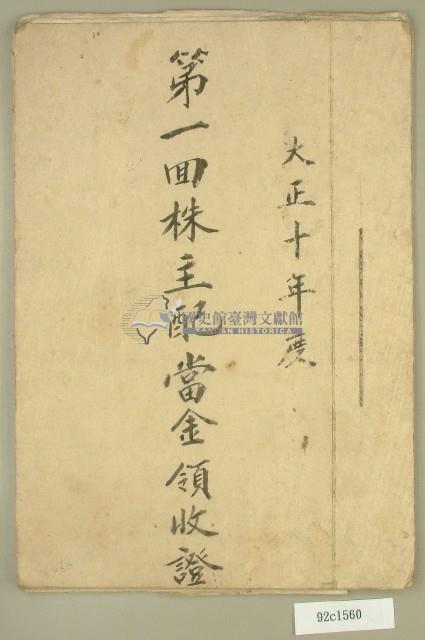 大正十年度
第一回株主配當金領收證
國史館臺灣文獻館
TAIWAN HISTORICA
92c1560